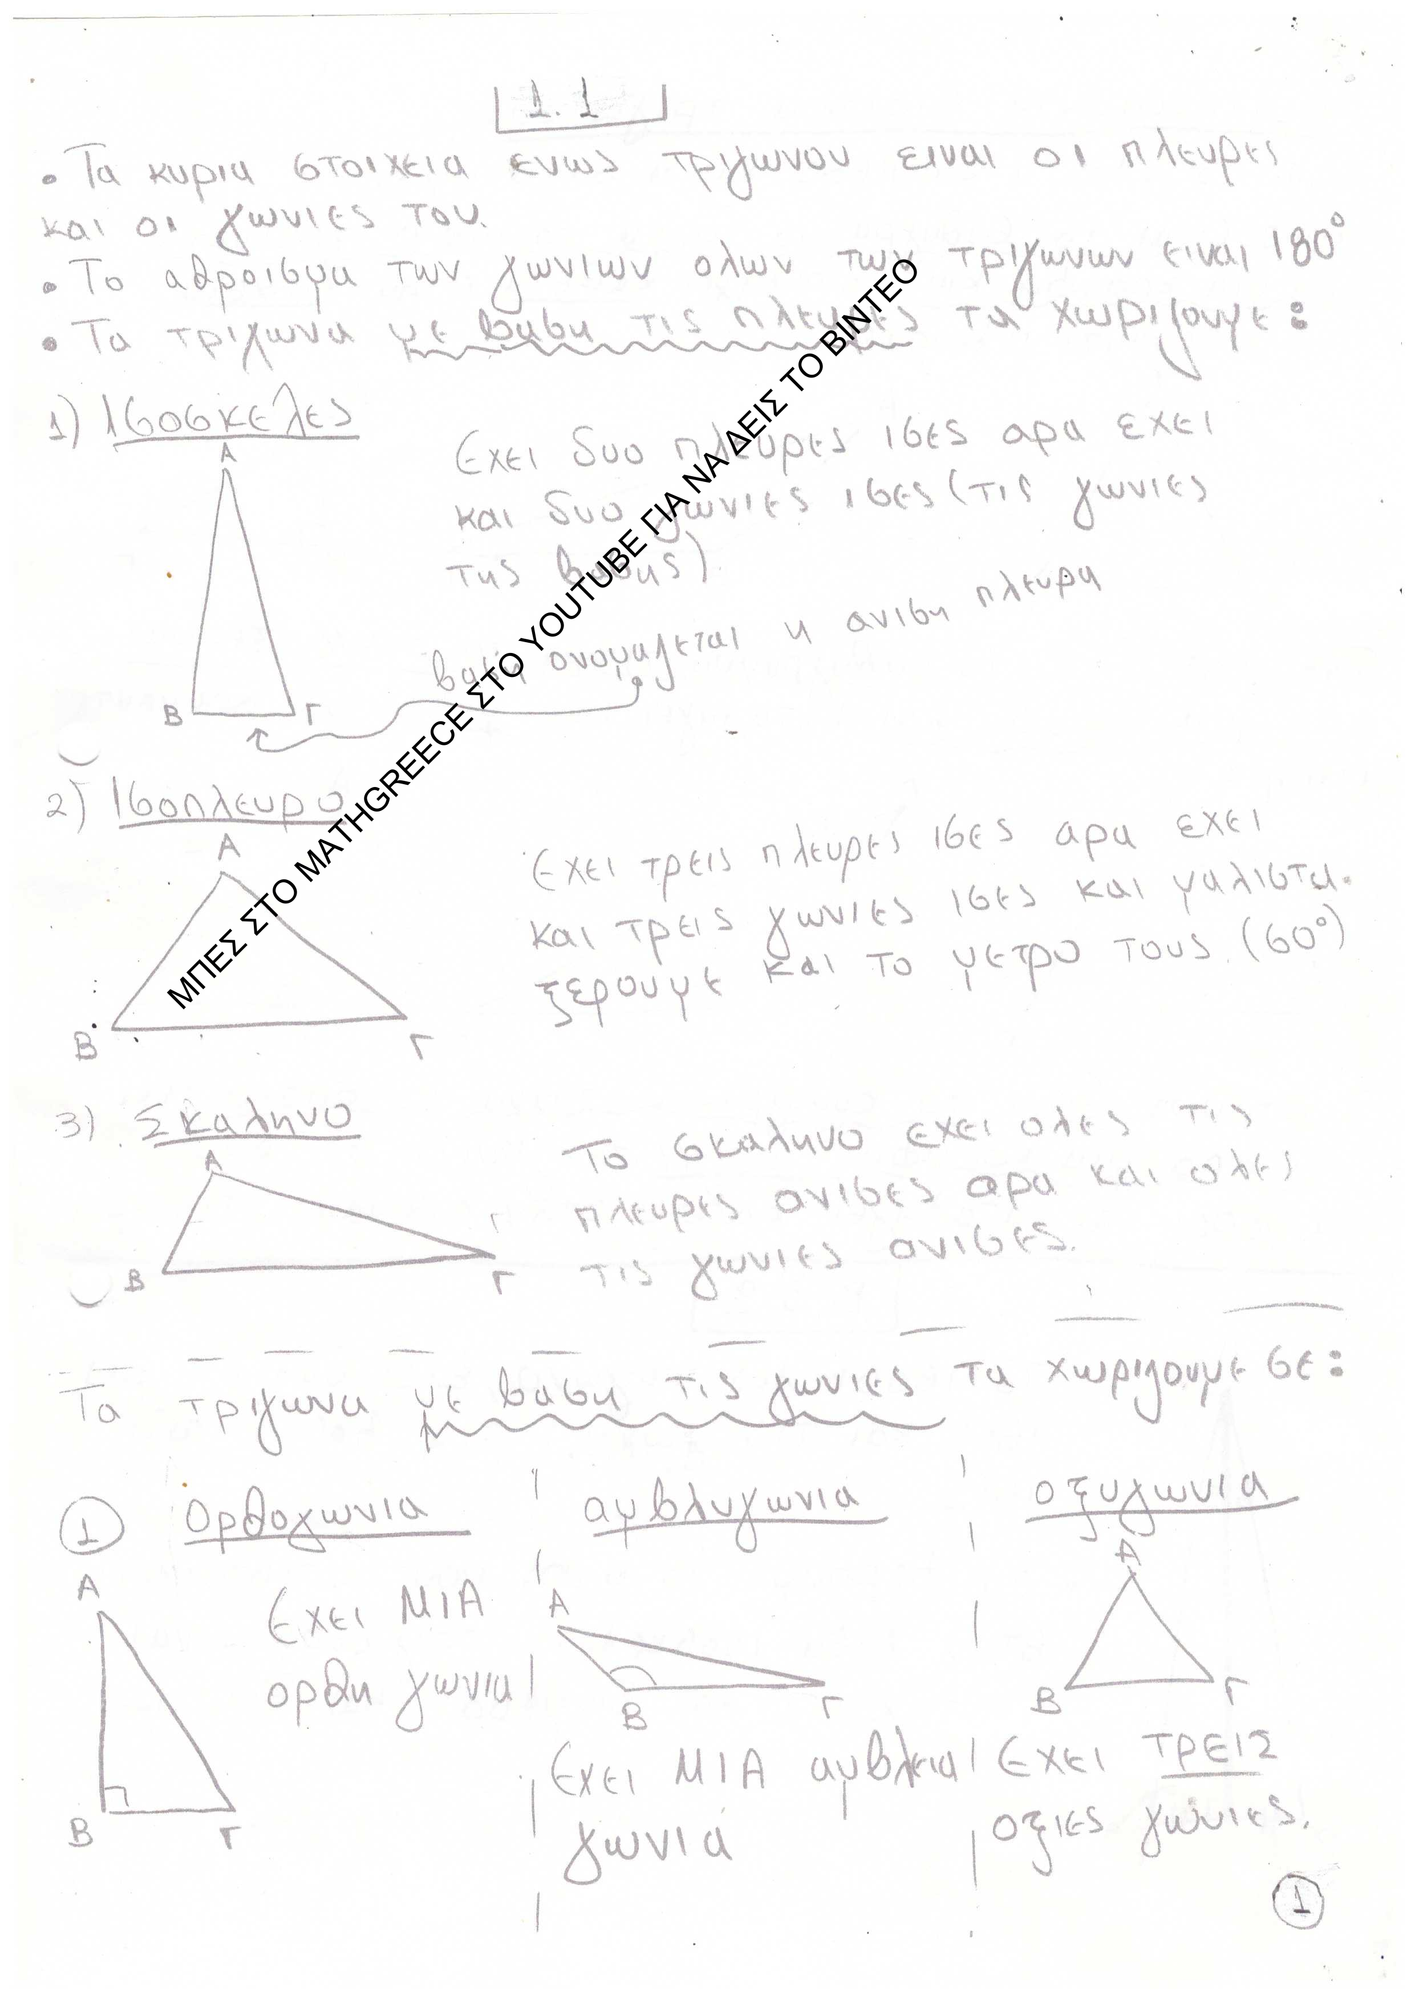 1.1
• Τα κυρια στοιχεια ενως τριγωνου ειναι οι πλευρες
και οι γωνιες του.
• Το αθροισμα των γωνιων ολων των τριγωνων ειναι 180°
• Τα τριγωνα με βαση τις πλευρες τα χωριζουμε:
1) Ισοσκελες
Εχει δυο πλευρες ισες αρα εχει
και δυο γωνιες ισες (τις γωνιες
της βασης)
βαση ονομαζεται η ανιση πλευρα
Α
Β Γ
ΜΠΕΣ ΣΤΟ MATHGREECE ΣΤΟ YOUTUBE ΓΙΑ ΝΑ ΔΕΙΣ ΤΟ ΒΙΝΤΕΟ
2) Ισοπλευρο
Α
Β Γ
Εχει τρεις πλευρες ισες αρα εχει
και τρεις γωνιες ισες και μαλιστα
ξερουμε και το μετρο τους. (60°)
3) Σκαληνο
Α
Γ
Β Γ
Το σκαληνο εχει ολες τις
πλευρες ανισες αρα και ολες
τις γωνιες ανισες.
Τα τριγωνα με βαση τις γωνιες τα χωριζουμε σε:
1 ορθογωνια αμβλυγωνια οξυγωνια
Α
Β Γ
Εχει ΜΙΑ
ορθη γωνια
Α
Β Γ
Εχει ΜΙΑ αμβλεια
γωνια
Α
Β Γ
Εχει ΤΡΕΙΣ
οξιες γωνιες.
1